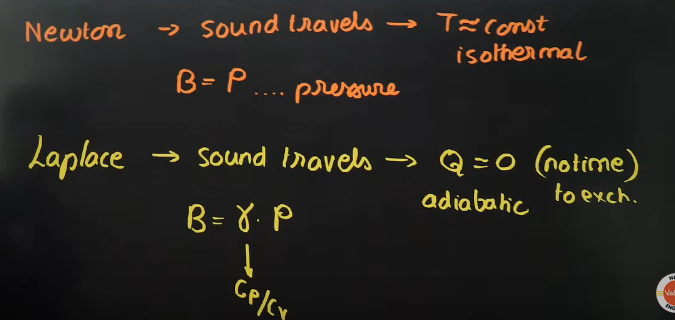 Newton → sound travels → T≈const
isothermal
B = P .... pressure
Laplace → sound travels → Q = 0 (notime)
adiabatic to exch.
B = γ. P
↓
Cp/Cv